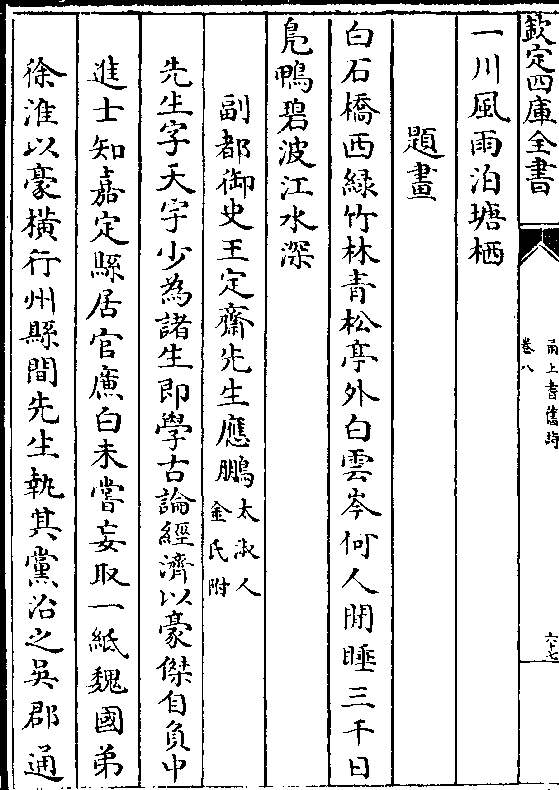 欽定四庫全書
甬上耆舊詩
卷八
六十七
一川風雨泊塘栖
題畫
白石橋西綠竹林青松亭外白雲岑何人閒睡三千日
鳬鴨碧波江水深
副都御史王定齋先生應鵬太淑人金氏附
先生字天宇少為諸生即學古論經濟以豪傑自負中
進士知嘉定縣居官廉白未嘗妄取一紙魏國弟
徐淮以豪橫行州縣間先生執其黨治之吳郡通